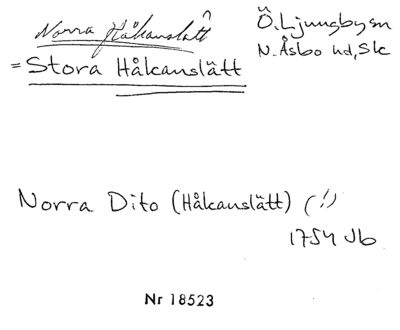 Norra Håkanslätt
Ö. Ljungby sn
N. Åsbo hd, Sk
= Stora Håkanslätt
Norra Dito (Håkanslätt) (!)
1754 Jb
Nr 18523